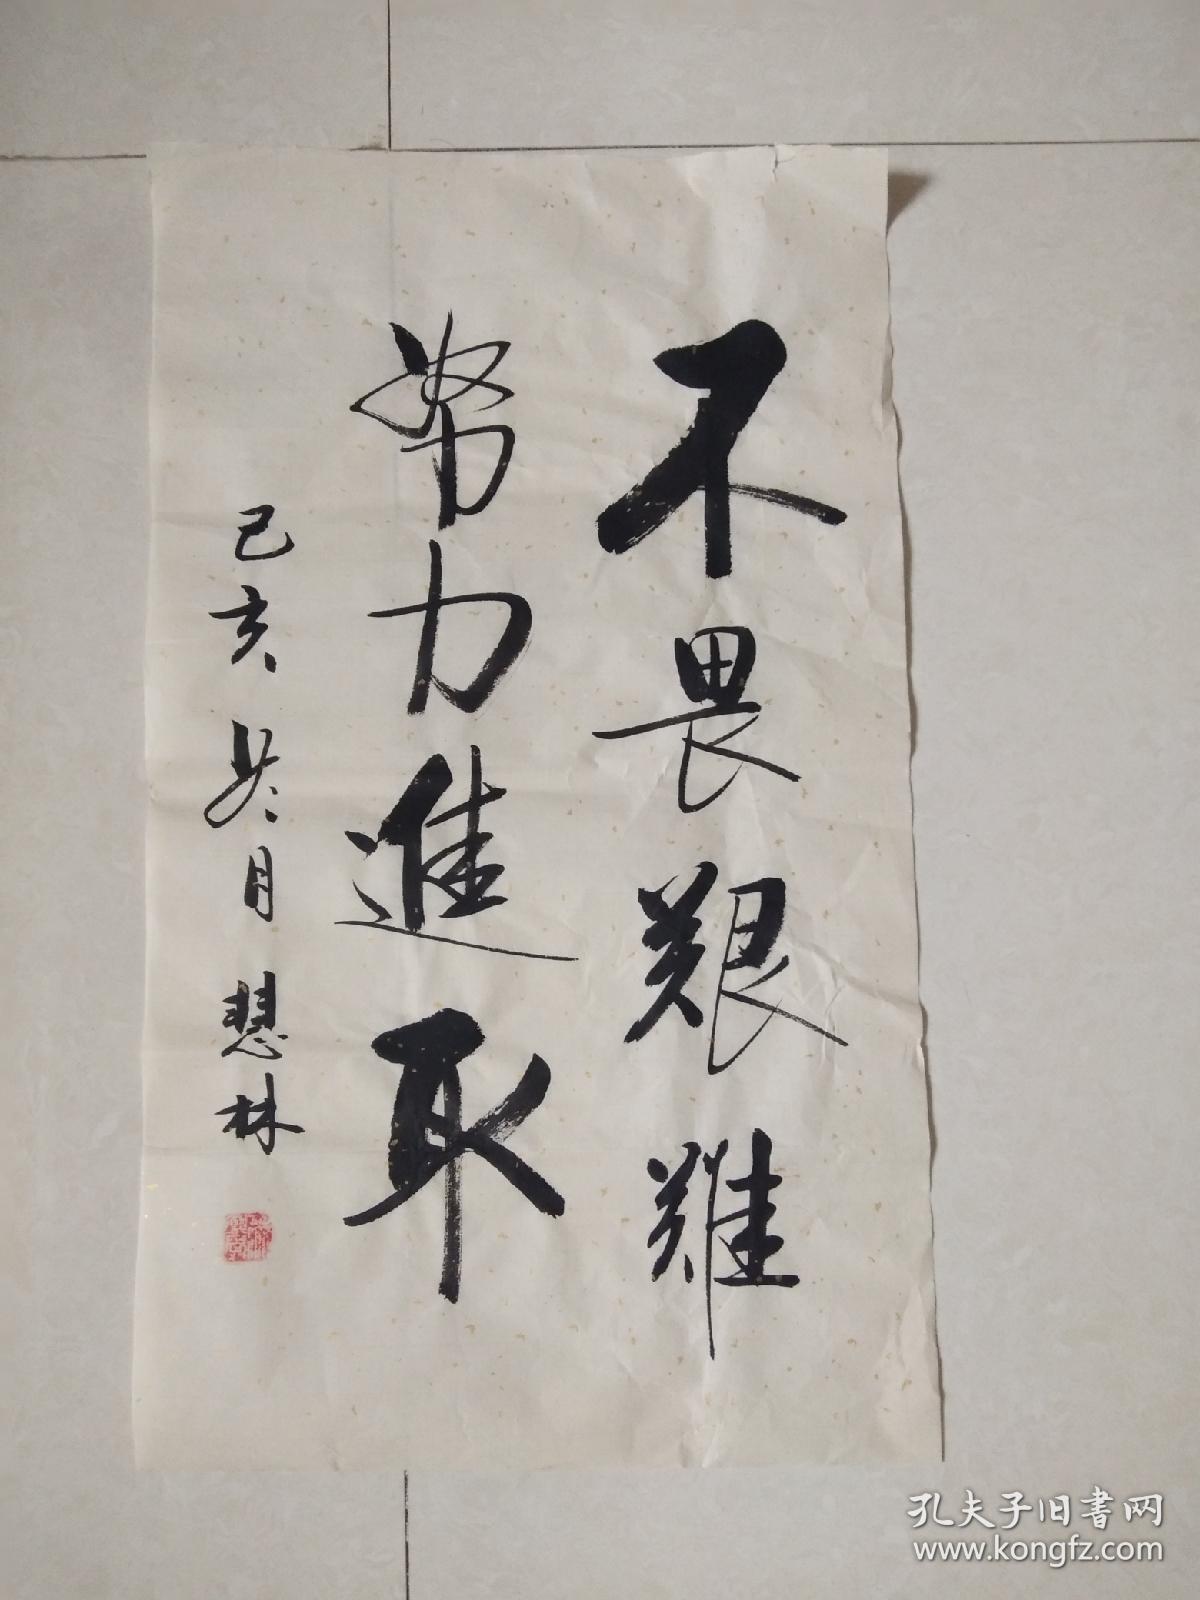 不畏艱難
努力進取
己亥冬月慧林
孔夫子旧书网
www.kongfz.com